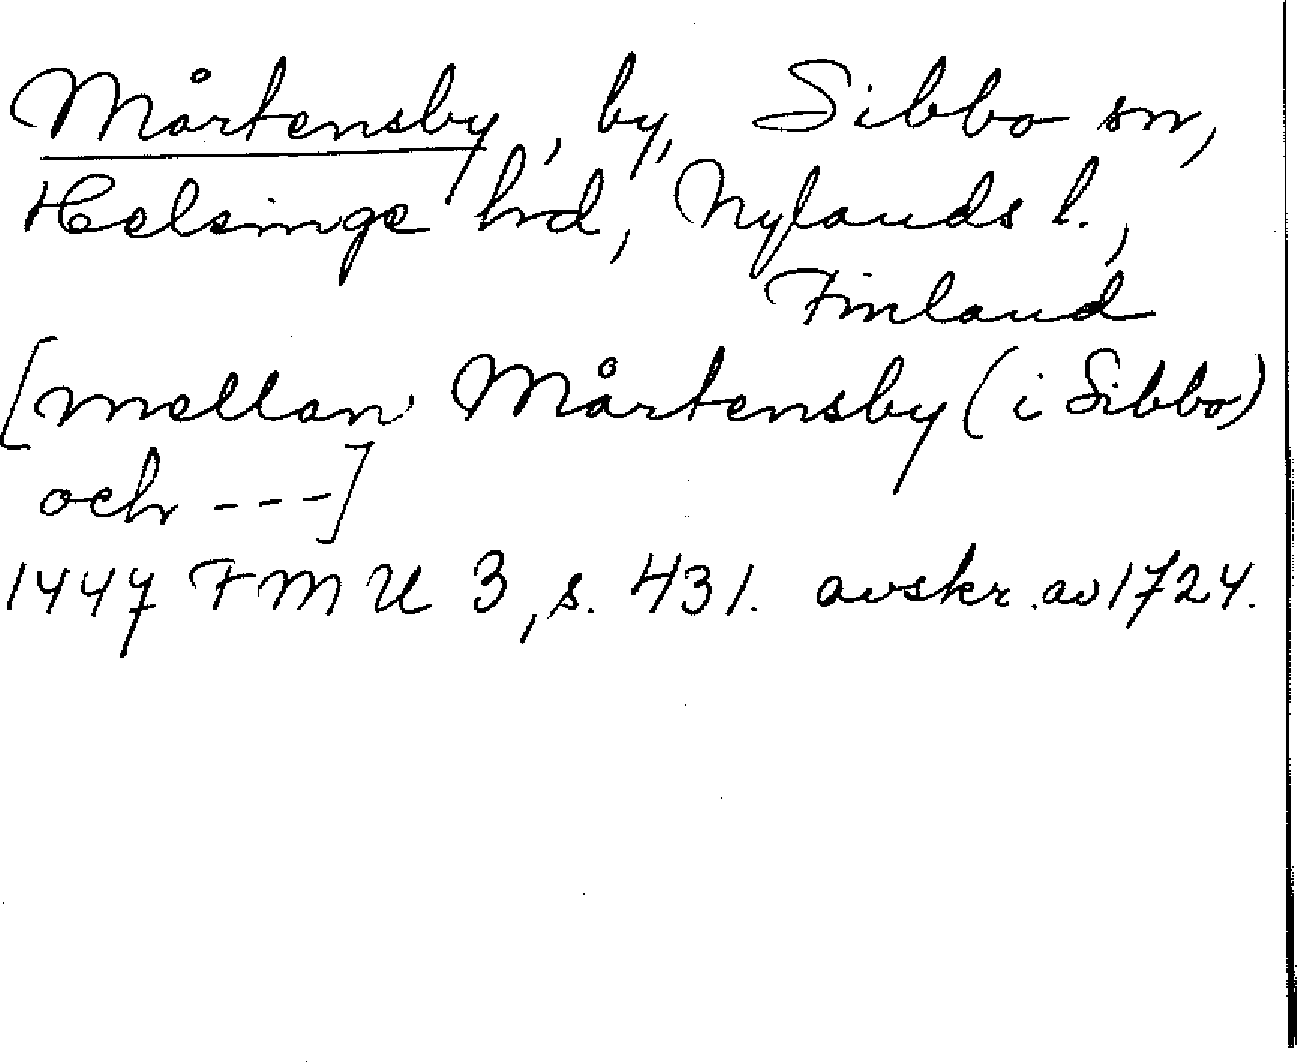 Mårtensby, by, Sibbo sn,
Helsinge hrd, Nylands l.,
Finland
[mellan Mårtensby (i Sibbo)
och ---]
1447 FMU 3, s. 431. avskr. av 1724.